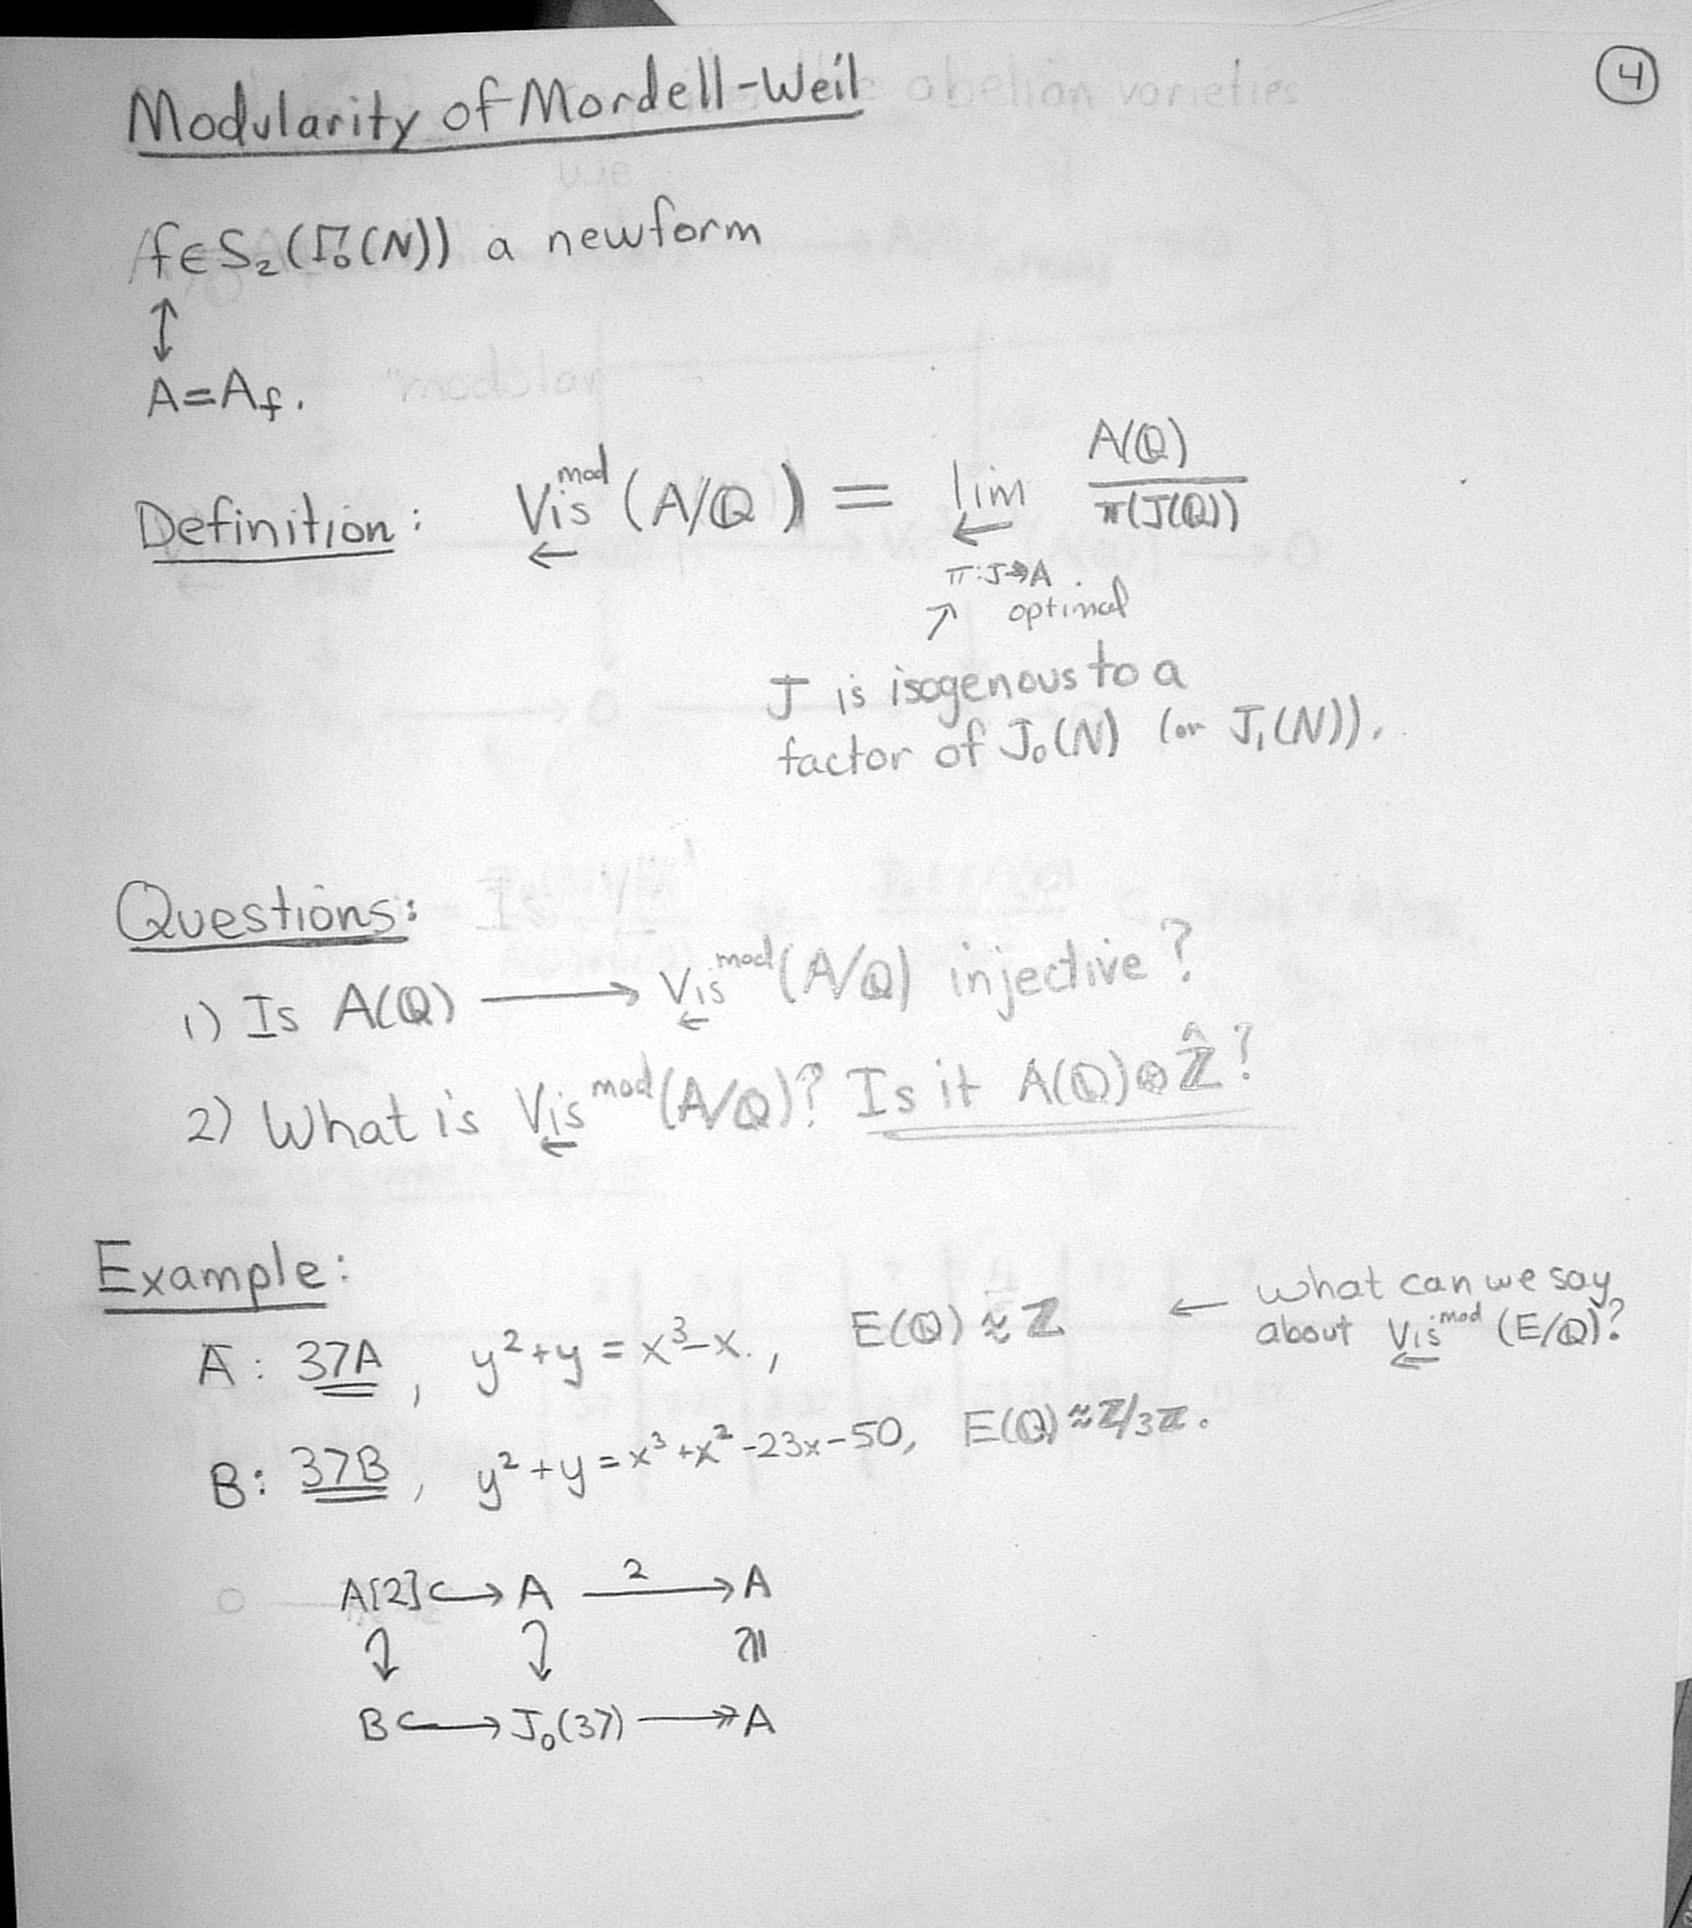 ④
Modularity of Mordell-Weil
f∈S₂(Γ₀(N)) a newform
↕
A=A_f.
Definition: Vis^mod (A/ℚ) = lim A(ℚ) / π(J(ℚ))
←
π:J↠A
optimal
J is isogenous to a
factor of J₀(N) (or J₁(N)).
Questions:
1) Is A(ℚ) ⟶ Vis^mod (A/ℚ) injective?
2) What is Vis^mod (A/ℚ)? Is it A(ℚ)⊗ℤ̂?
Example:
A: 37A, y²+y=x³-x., E(ℚ)≈ℤ ← what can we say
about Vis^mod (E/ℚ)?
B: 37B, y²+y=x³+x²-23x-50, E(ℚ)≈ℤ/3ℤ.
A[2] ↪ A —2→ A
B ↪ J₀(37) ↠ A